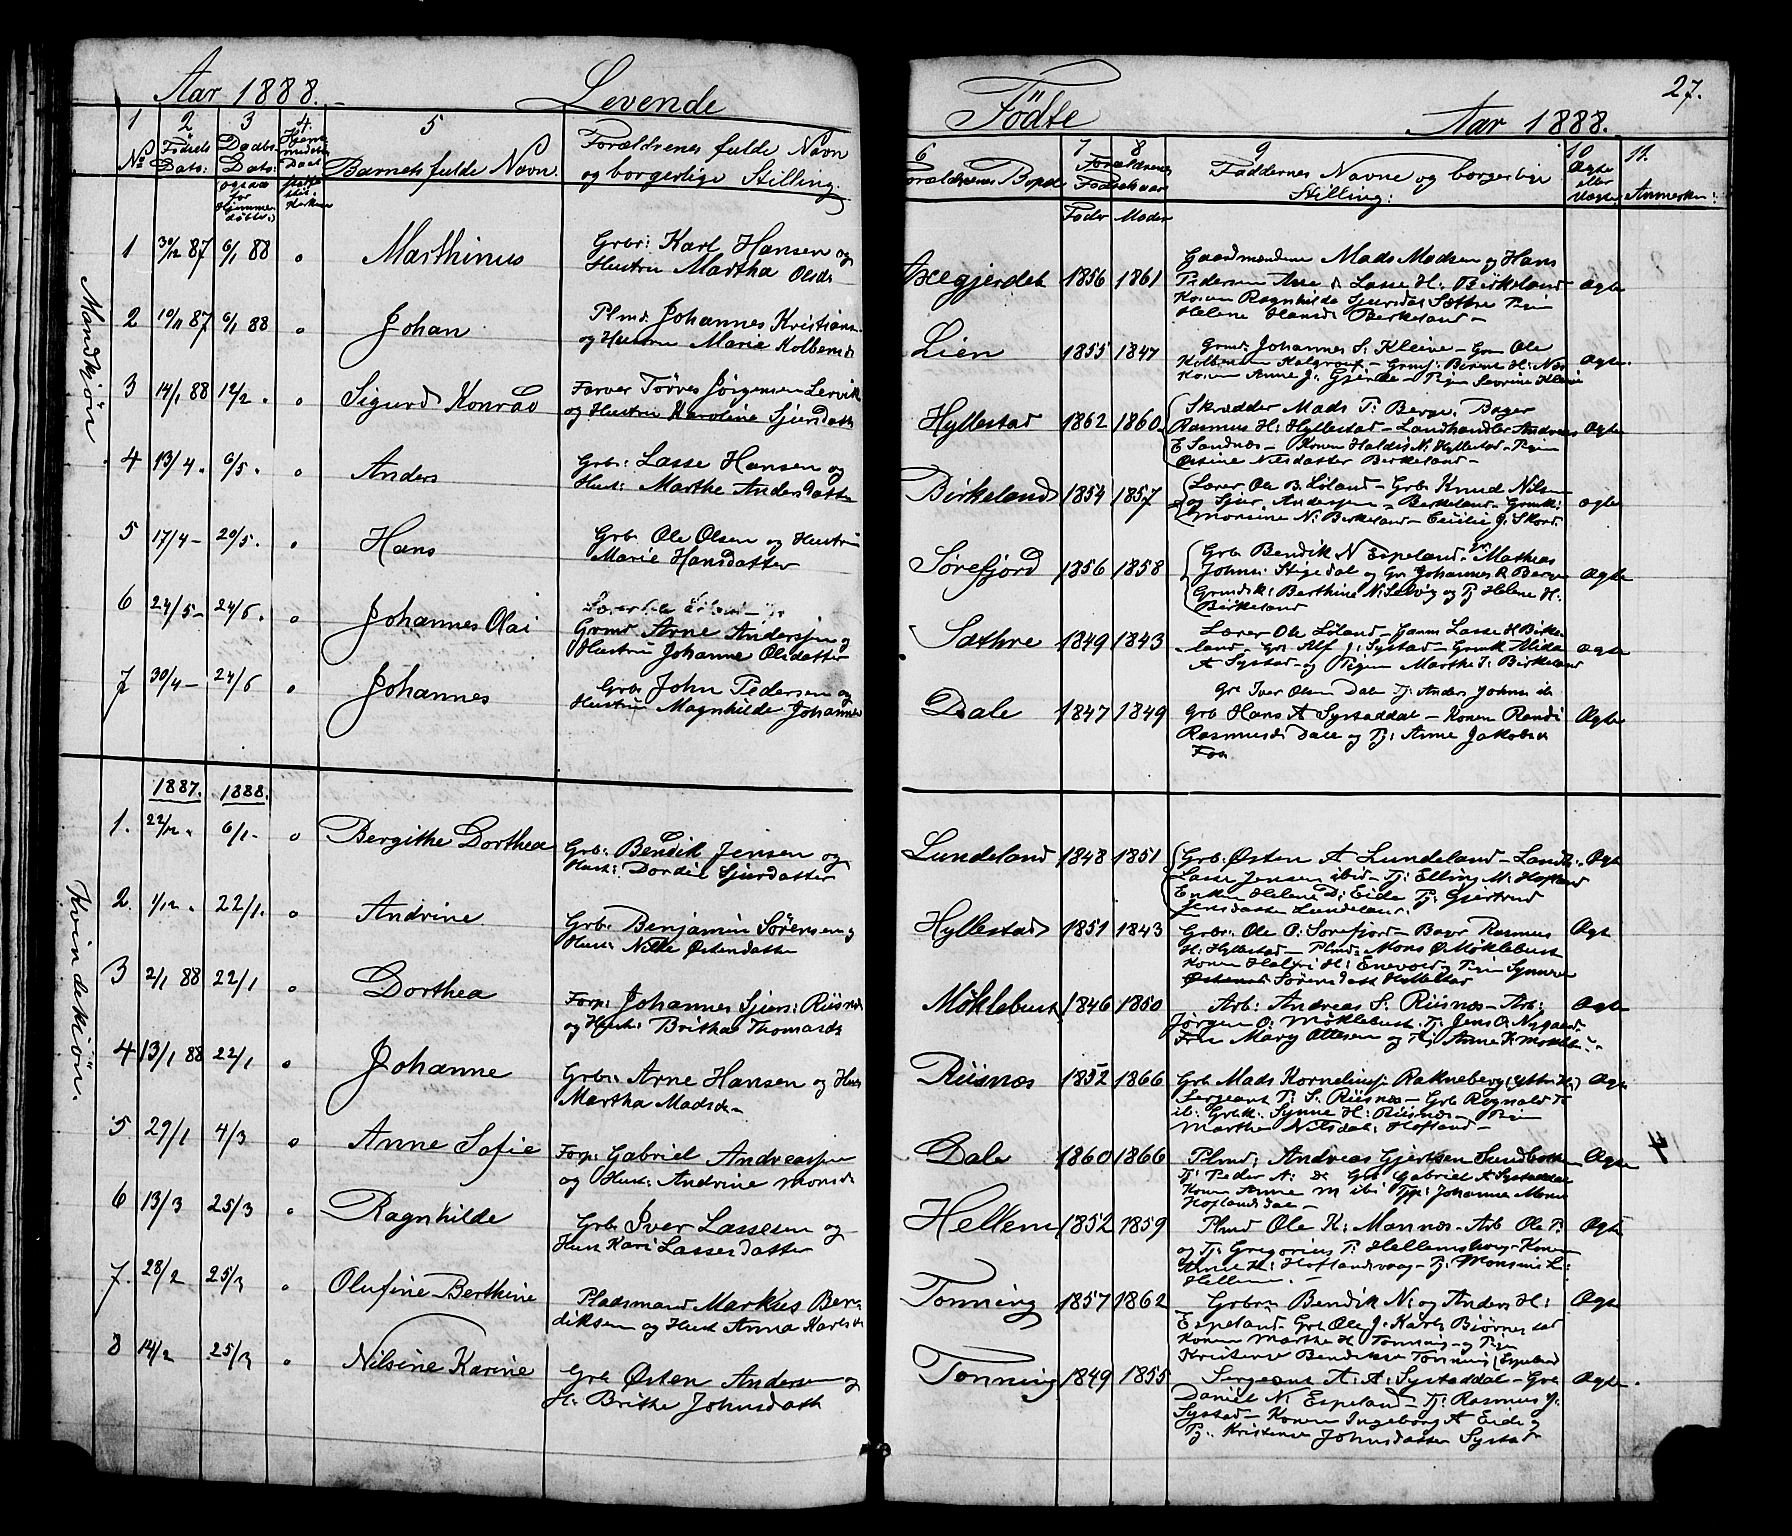 Aar 1888.
Levende
Födte
Aar 1888.
27.
1
2
3
4.
5
6
7
8
9
10
11.
No
Födsels
Dato:
Daabs
Dato:
ogsaa
for
Hjemme
döbte:
Barnets fulde Navn
Forældrenes fulde Navn
og borgerlige Stilling:
Forældrenes Bopæl
Forældrenes
Födselsaar
Fader Moder
Faddernes Navne og borgerlige
Stilling:
Ægte
eller
Uægte
Anmerkn:
Mandkjön
1 30/12 87 6/1 88 o Marthinus
Grbr: Karl Hansen og
Hustru Martha Olsd:
1856 1861
Gaardmændene Mads Madsen og Hans
Pedersen Aase & Lasse H: Birkeland
Konen Ragnhilde Sjursdr Sæthre Pigen
Helene Hansd: Birkeland –
Ægte
2 10/11 87 6/1 88 o Johan
Plmd: Johannes Kristians.
og Hustru Marie Kolbensd
Lien 1855 1847
Grmd: Johannes S: Kleive – Grm Ole
Konen Anne J. Gjerde – Pigen Severine Kleive
Ægte.
3 14/1 88 12/2 . o Sigurd Konrad
Farver Törres Jörgensen Lervik
og Hustru Karoline Sjursdatter
Hyllestad 1862 1860
Skrædder Mads T: Berge. Bager
Rasmus H: Hyllestad – Landhandler Andreas
E Sandnæs – Konen Haldis N: Hyllestad – Pigen
Østine Nilsdatter Birkeland –
Ægte
4 13/4 . 6/5 . o Anders
Grb: Lasse Hansen og
Hust: Marthe Andersdatter
Birkeland 1854 1857
Lærer Ole B. Löland – Grb Knud Nilsen
og Sjur Anderssen – Berkeland – Grmk:
Monsine N: Birkeland – Cecilie J: Skor
ægte
5 17/4 – 20/5. o Hans
Grb. Ole Olsen og Hustru
Marie Hansdatter
Sörefjord 1856 1858
Grb. Bendik N Espeland – Mathias
Johns: Stigedal og Gr: Johannes R Berge
Grmdk: Berthine N: Selvig og Pj Helene H:
Birkeland
Ægte
6 24/5 – 24/6. o Johannes Olai
Grmd Arne Anderssen og
Hustru Johanne Olsdatter
Sæthre 1849 1843
Lærer Ole Löland – Gaarm Lasse H Birke-
land – Grb Alf J: Systad – Grmk Alida
A Systad – og Pigen Marthe I: Birkeland
Ægte
7 30/4 – 24/6 o Johannes
Grb. John Pedersen og
Hustru Magnhilde Johannes
Dale 1847 1849
Gr. Iver Olsen Dale Pj: Anders Johns ib
Grb Hans A Systaddal – Konen Randi
Rasmusd: Dale og Pj: Anne Jakobsd
Ægte
Kvindekiön.
1887. 1888.
1. 22/12 . 6/1 – o Bergithe Dorthea
Grb: Bendik Jensen og
Hust: Dordei Sjursdatter
Lundeland 1848 1851
Grb: Østen A Lundeland – Landh.
Lasse Jensen ibid – Pj: Elling M: Hofland
Enken Helene D: Eide Pj: Gjertrud
Jensdatter Lundeland.
Ægt
2. 1/12 . 22/1. o Andrine
Grb: Benjamin Sörensen og
Hust: Nille Østensdatter
Hyllestad 1851 1843
Grbr: Ole O: Sorefjord – Bagr Rasmus
H: Hyllestad – Plmd: Mons Ø Möklebust
Ægt
3 2/1 88 22/1 o Dorthea
Forp: Johannes Sjurs: Riisnes
og Hust: Britha Thomasd:
Möklebust 1846 1850
Arb: Andreas S: Riisnæs – Arb:
Jörgen O: Möklebust. Pj: Jens O: Nygaard
Frk Mary Ottesen og Pj Anne
Ægte
4 13/1 88 22/1 o Johanne
Grbr: Arne Hansen og Hust
Martha Madsdr –
Riisnæs 1852 1866
Grb Mads Kornelius: Rakneberg (Ytter H:)
Sergeant P: S: Riisnæs – Grb Rognald
ib: Grbk: Synne H: Riisnæs – Pigen
Marthe Nilsdat: Hofland –
Ægte
5 29/1 4/3 o Anne Sofie
Forp: Gabriel Andreassen
og Hust: Andrine Monsd:
Dale 1860 1866
Plmd: Andreas Gjertsen Sundbotten
Pj: Peder A: D: Grb Gabriel A Systaddal
Konen Anne M ibi Pj: Johanne Mons
Hoflandsdal –
Ægte
6 13/3 25/3 o Ragnhilde
Grb: Iver Lassesen og
Hust Kari Lassesdatter
Hellem 1852 1859
Plmd Ole K: Mannæs – Arb Ole P:
og Pj: Gregorius P: Hellemshaug – Konen
Anne H: Hoflandsvaag – Pj: Monsine L:
Hellem. –
Ægte
7. 28/2 25/3 o Olufine Berthine
Pladsmand Markus Ben-
diksen og Hust Anna Karlsdr
Tonning 1857 1862
Grbr: Bendik N: og Anders H:
Espeland. Grb Ole J. Karls Björnestad
Konen Marthe H Tonning – og Pigen
Kristense Bendiksd Tonning (Espeland
Ægte
8 14/2 25/3 o Nilsine Karine
Grb Østen Andersen og
H: Brithe Johnsdatt
Tonning 1849 1855
Sergeant A: A: Systaddal – Grb
Daniel N: Espeland – Pj: Rasmus J.
Systad – Konen Ingeborg A Eide og
Pj: Kristense Johnsdatter Systad
Ægte.